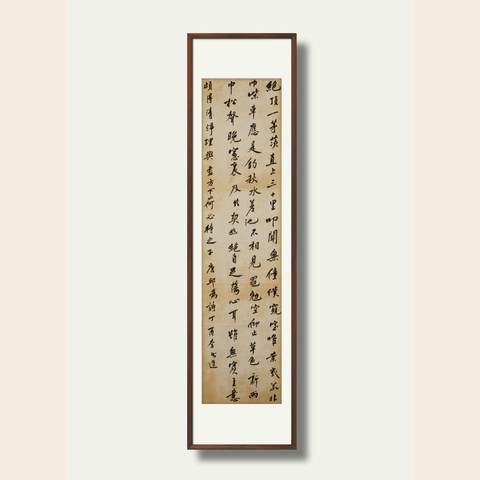 絕頂一茅茨直上三十里叩關無僮僕窺室唯案几若非
巾柴車應是釣秋水差池不相見黽勉空仰止草色新雨
中松聲晚窗裏及茲契幽絕自足蕩心耳雖無賓主意
頗得清淨理興盡方下山何必待之子 唐邱為詩丁酉